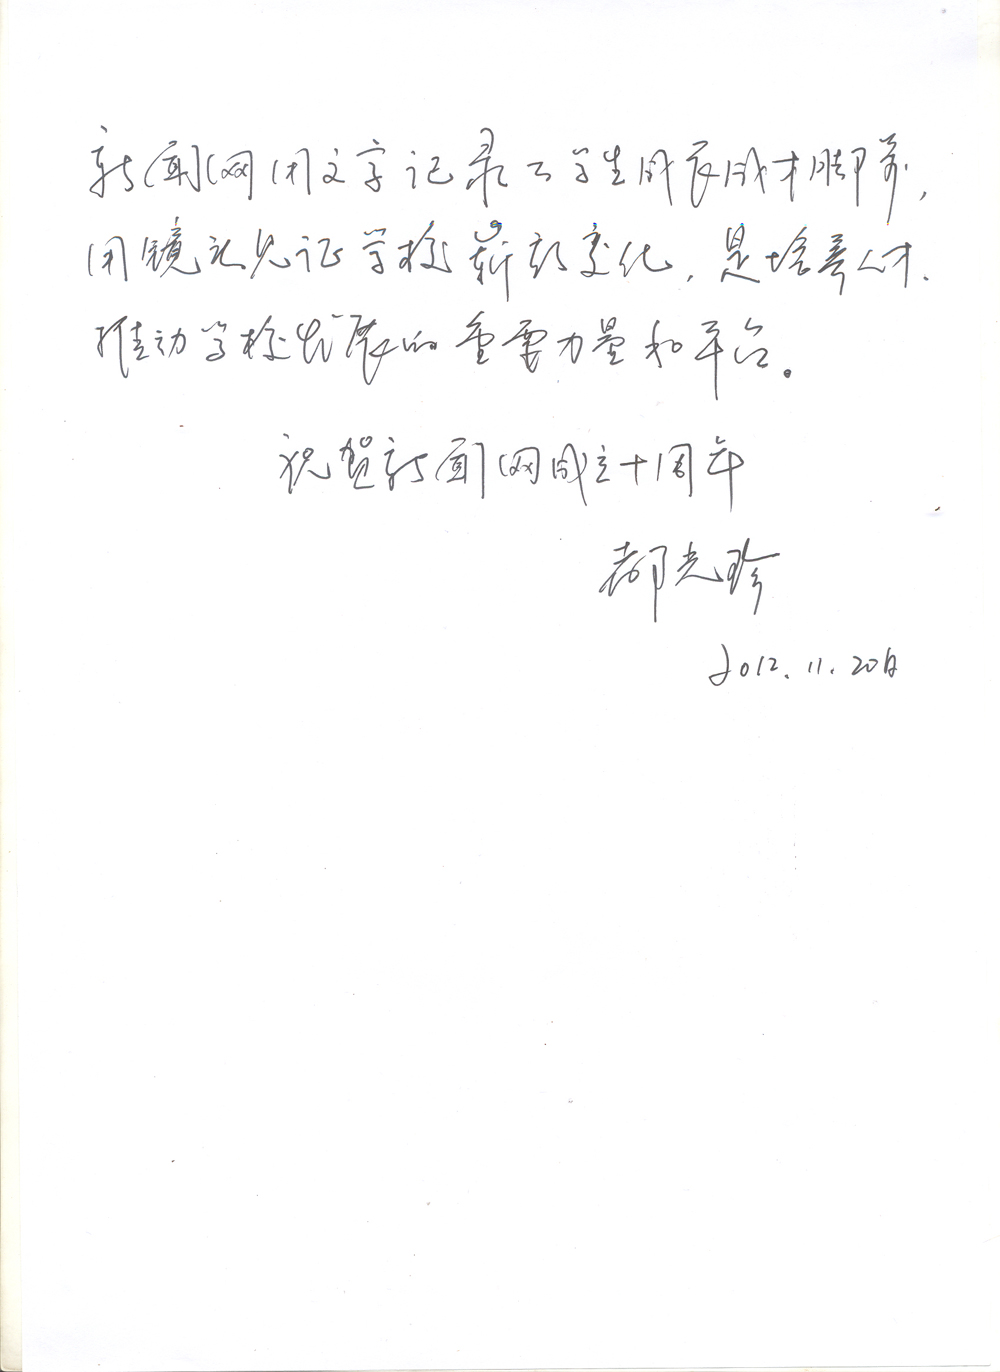 新闻网用文字记录了学生成长成才脚步，
用镜头见证学校崭新变化，是培养人才、
推动学校发展的重要力量和平台。
祝贺新闻网成立十周年
都光珍
2012.11.20日